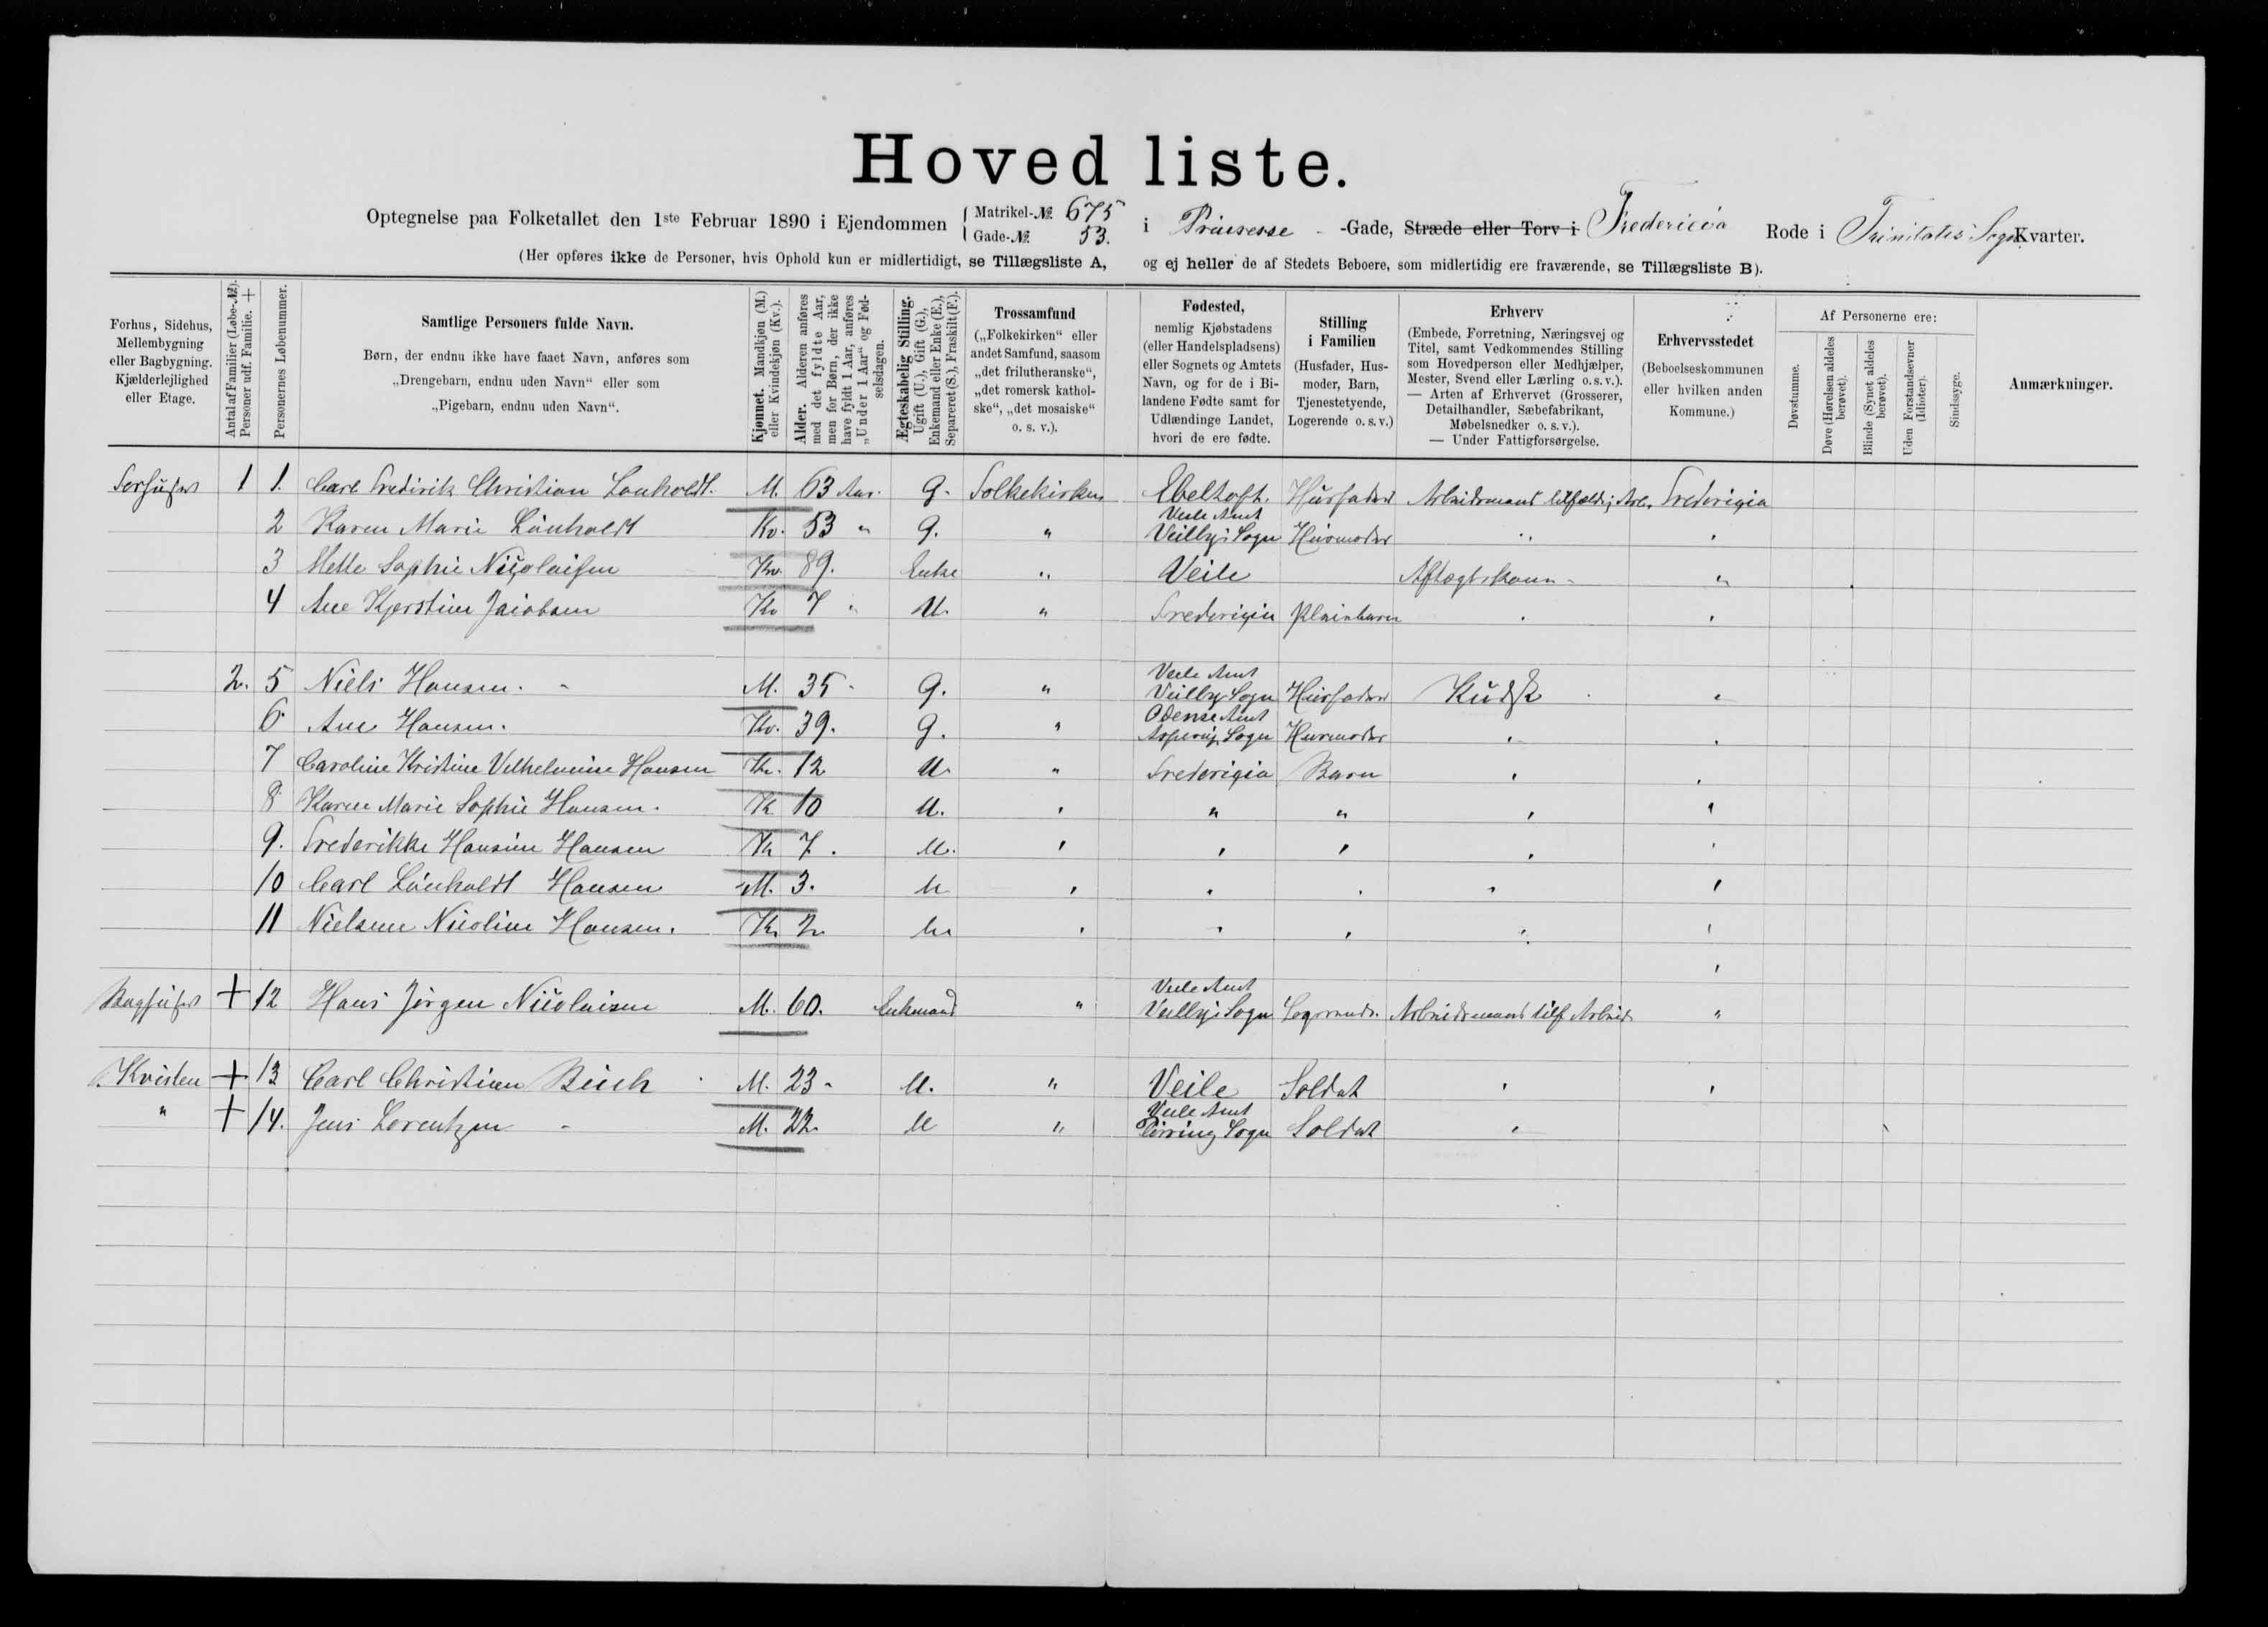 Hovedliste.
Optegnelse paa Folketallet den 1ste Februar 1890 i Ejendommen { Matrikel-№ 675 i Prinsesse -Gade, Stræde eller Torv i Fredericia Rode i Trinitatis Sogn Kvarter.
Gade-№ 53.
(Her opføres ikke de Personer, hvis Ophold kun er midlertidigt, se Tillægsliste A, og ej heller de af Stedets Beboere, som midlertidig ere fraværende, se Tillægsliste B).
Forhus, Sidehus, Mellembygning eller Bagbygning. Kjælderlejlighed eller Etage.
Antal af Familier (Løbe-№). Personer udf. Familie. +
Personernes Løbenummer.
Samtlige Personers fulde Navn.
Børn, der endnu ikke have faaet Navn, anføres som
„Drengebarn, endnu uden Navn“ eller som
„Pigebarn, endnu uden Navn“.
Kjønnet. Mandkjøn (M.) eller Kvindekjøn (Kv.).
Alder. Alderen anføres med det fyldte Aar, men for Børn, der ikke have fyldt 1 Aar, anføres „Under 1 Aar“ og Fødselsdagen.
Ægteskabelig Stilling. Ugift (U.), Gift (G.), Enkemand eller Enke (E.), Separeret (S.), Fraskilt (F.).
Trossamfund
(„Folkekirken“ eller andet Samfund, saasom „det frilutheranske“, „det romersk katholske“, „det mosaiske“ o. s. v.).
Fødested,
nemlig Kjøbstadens (eller Handelspladsens) eller Sognets og Amtets Navn, og for de i Bilandene Fødte samt for Udlændinge Landet, hvori de ere fødte.
Stilling i Familien
(Husfader, Husmoder, Barn, Tjenestetyende, Logerende o. s. v.)
Erhverv
(Embede, Forretning, Næringsvej og Titel, samt Vedkommendes Stilling som Hovedperson eller Medhjælper, Mester, Svend eller Lærling o. s. v.). — Arten af Erhvervet (Grosserer, Detailhandler, Sæbefabrikant, Møbelsnedker o. s. v.). — Under Fattigforsørgelse.
Erhvervsstedet
(Beboelseskommunen eller hvilken anden Kommune.)
Af Personerne ere:
Døvstumme.
Døve (Hørelsen aldeles berøvet).
Blinde (Synet aldeles berøvet).
Uden Forstandsevner (Idioter).
Sindssyge.
Anmærkninger.
Forhuset 1 1. Carl Fredirik Christian Lonholdt. M. 63 Aar. G. Folkekirken Ebeltoft. Husfader Arbeidsmand Fredericia
2 Karen Marie Lönholdt Kv. 53 " G. " Veile Amt Veilby Sogn Husmoder " "
3 Mette Sophie Nicolaisen Kv. 89. Enke " Veile Aftægtskone "
4 Ane Kjerstine Jacobsen Kv 7 " U. " Fredericia Pleiebarn " "
2. 5 Niels Hansen. M. 35 G. " Veile Amt Veilby Sogn Husfader Kudsk "
6 Ane Hansen. Kv. 39. G. " Odense Amt Asperup Sogn Husmoder " "
7 Caroline Kristine Vilhelmine Hansen Kv. 12 U. " Fredericia Barn " "
8 Karen Marie Sophie Hansen. K 10 U. " " " " "
9. Frederikke Hansine Hansen Kv 7. U. " " " " "
10 Carl Lönholdt Hansen M. 3. U " " " " "
11 Nielsine Nicoline Hansen. Kv 2 U " " " " "
Baghuset + 12 Hans Jörgen Nicolaisen M. 60. Enkemand " Veile Amt Veilby Sogn Logerende. Arbeidsmand tilf Arbeid "
Kvisten + 13 Carl Christian Buch M. 23 U. " Veile Soldat " "
" + 14. Jens Lorentzen M. 22 U " Veile Amt Sogn Soldat "